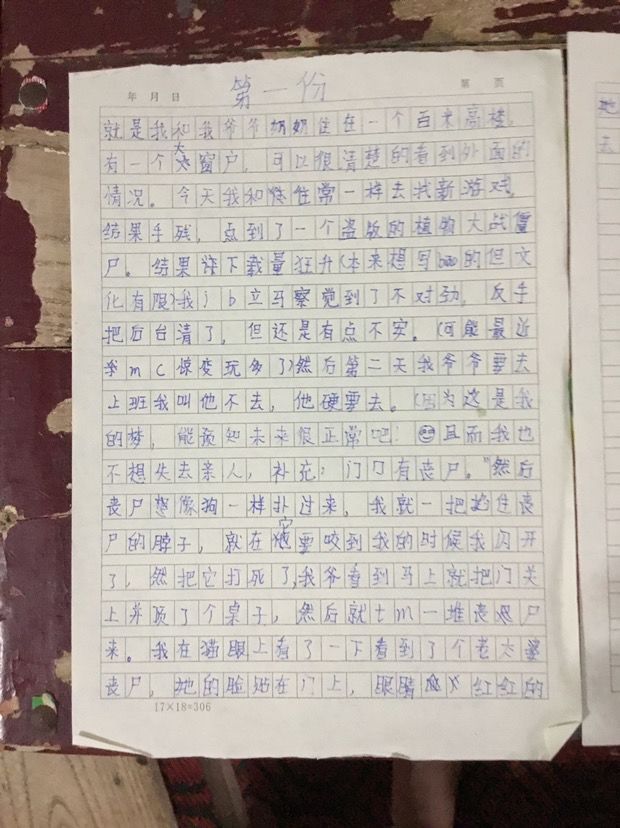 年 月 日
第一份
第 页
就是我和我爷爷奶奶住在一个百米高楼。
有一个大窗户，可以很清楚的看到外面的
情况。今天我和往常一样去找新游戏。
结果手残，点到了一个盗版的植物大战僵
尸。结果下载量狂升(本来想写的但文
化有限)我jb立马察觉到了不对劲，反手
把后台清了，但还是有点不安。(可能最近
mc惊变玩多了)然后第二天我爷爷要去
上班我叫他不去，他硬要去。(因为这是我
的梦，能预知未来很正常吧！且而我也
不想失去亲人，补充：门口有丧尸。"然后
丧尸像狗一样扑过来，我就一把掐住丧
尸的脖子，就在它要咬到我的时候我闪开
了，然把它打死了,我爷看到马上就把门关
上并顶了个桌子，然后就tm一堆丧尸
来。我在猫眼上看了一下看到了个老太婆
丧尸，她的脸贴在门上，眼睛红红的
17×18=306
她
去